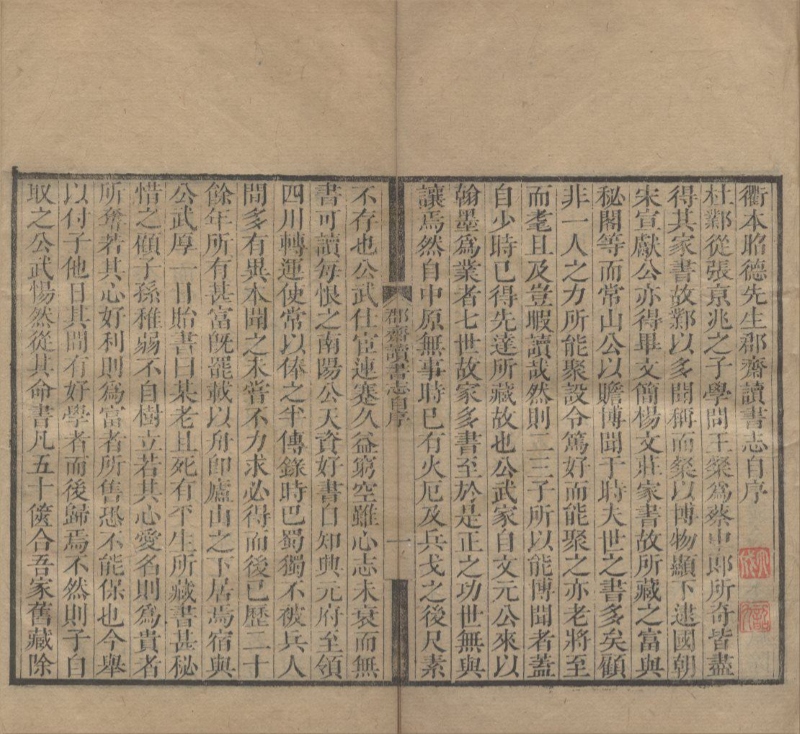 衢本昭德先生郡齋讀書志自序
杜鄴從張京兆之子學問王粲爲蔡中郎所奇皆盡
得其家書故鄴以多聞稱而粲以博物顯下逮國朝
宋宣獻公亦得畢文簡楊文莊家書故所藏之富與
秘閣等而常山公以贍博聞于時夫世之書多矣顧
非一人之力所能聚設令篤好而能聚之亦老將至
而耄且及豈暇讀哉然則二三子所以能博聞者蓋
自少時已得先達所藏故也公武家自文元公來以
翰墨爲業者七世故家多書至於是正之功世無與
讓焉然自中原無事時已有火厄及兵戈之後尺素
郡齋讀書志自序
一
不存也公武仕宦連蹇久益窮空雖心志未衰而無
書可讀每恨之南陽公天資好書自知興元府至領
四川轉運使常以俸之半傳錄時巴蜀獨不被兵人
間多有異本聞之未嘗不力求必得而後已歷二十
餘年所有甚富旣罷載以舟卽廬山之下居焉宿與
公武厚一日貽書曰某老且死有平生所藏書甚秘
惜之顧子孫稚弱不自樹立若其心愛名則爲貴者
所奪若其心好利則爲富者所售恐不能保也今舉
以付子他日其間有好學者而後歸焉不然則子自
取之公武惕然從其命書凡五十篋合吾家舊藏除